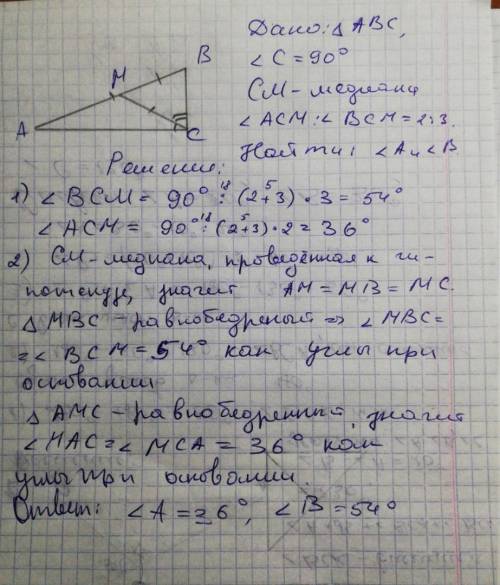 B
M
A
C
Дано: △ABC,
∠C = 90°
CM - медиана
∠ACM : ∠BCM = 2:3.
Найти: ∠A и ∠B
Решение:
1) ∠BCM = 90° : (2+3) · 3 = 54°
18 5
∠ACM = 90° : (2+3) · 2 = 36°
18 5
2) CM - медиана, проведённая к ги-
потенузе, значит AM = MB = MC.
△MBC - равнобедреный => ∠MBC =
= ∠BCM = 54° как углы при
основании
△AMC - равнобедренный, значит
∠MAC = ∠MCA = 36° как
углы при основании.
Ответ: ∠A = 36°, ∠B = 54°